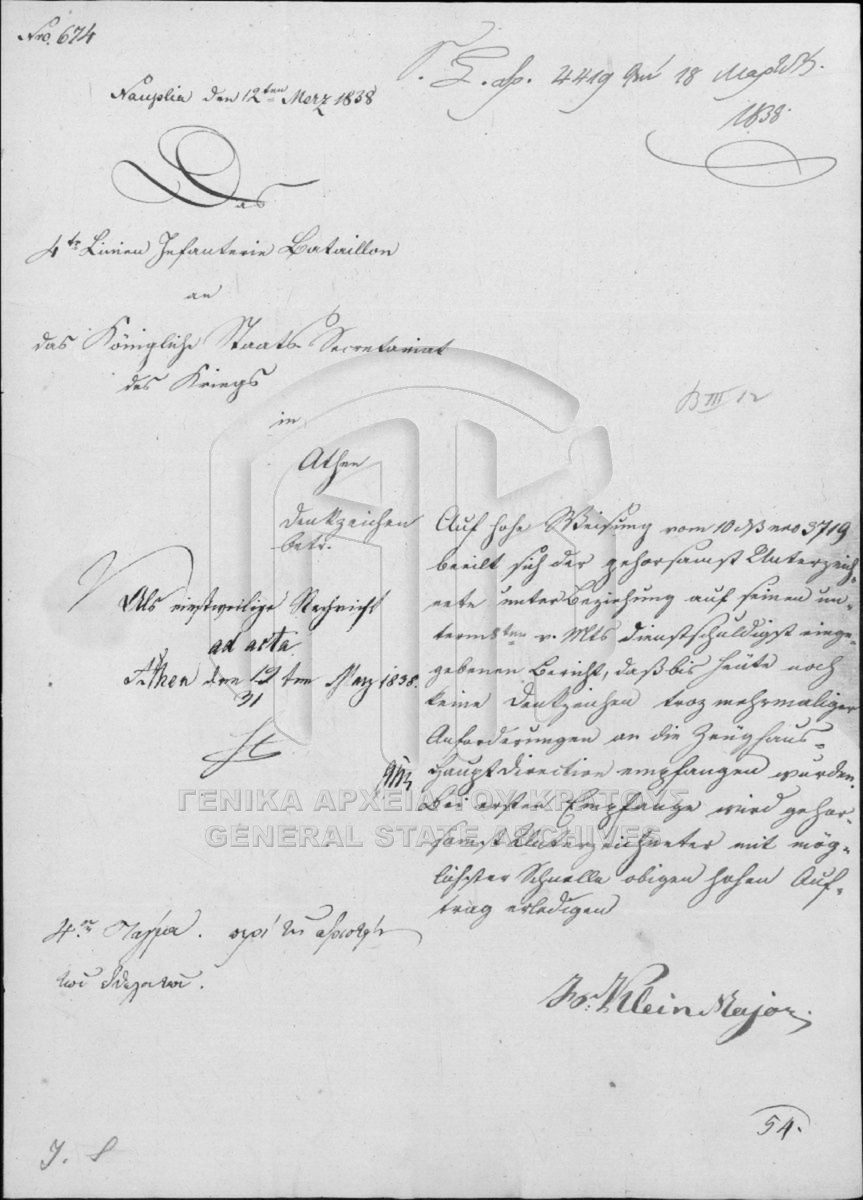 Nro. 674
Σ. Σ. αρ. 4419 τὴν 18 Μαρτίου
1838.
Nauplia den 12ten Merz 1838
Das
4te Linien Infanterie Bataillon
an
das Königliche Staats Secretariat
des Kriegs
in
Athen
B III 12
Denkzeichen
betr.
Auf hohe Weisung vom 10 nro 3719
beeilt sich der gehorsamst Unterzeich-
nete unter Beziehung auf seinen un-
term 8ten v. Mts dienstschuldigst einge-
gebenen Bericht, daß bis heute noch
keine Denkzeichen troz mehrmaliger
Anforderungen an die Zeughaus-
Hauptdirection empfangen wurden.
Bei ersten Empfange wird gehor-
samst Unterzeichneter mit mög-
lichster Schnelle obigen hohen Auf-
trag erledigen
Als einstweilige Nachricht
ad acta
Athen den 19ten Merz 1838.
31
4ον Τάγμα. περὶ τῶν ἀριστείων
Klein Major.
54.
ΓΕΝΙΚΑ ΑΡΧΕΙΑ ΤΟΥ ΚΡΑΤΟΥΣ
GENERAL STATE ARCHIVES